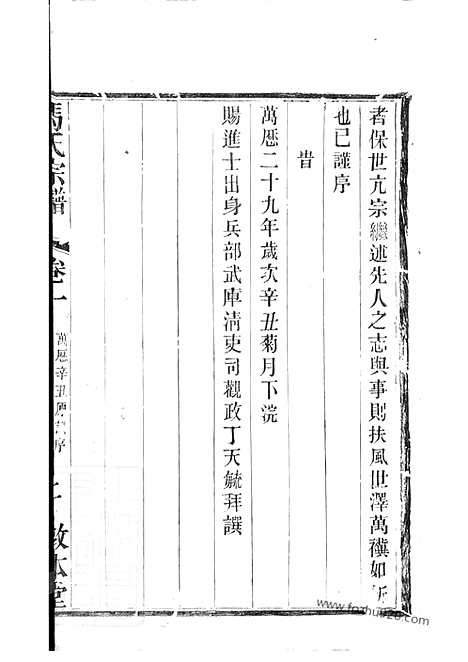 者保世亢宗繼述先人之志與事則扶風世澤萬禩如
也已謹序
旹
萬厯二十九年歲次辛丑菊月下浣
賜進士出身兵部武庫淸吏司觀政丁天毓拜譔
馬氏宗譜
卷一
萬厯辛丑序
敦本堂